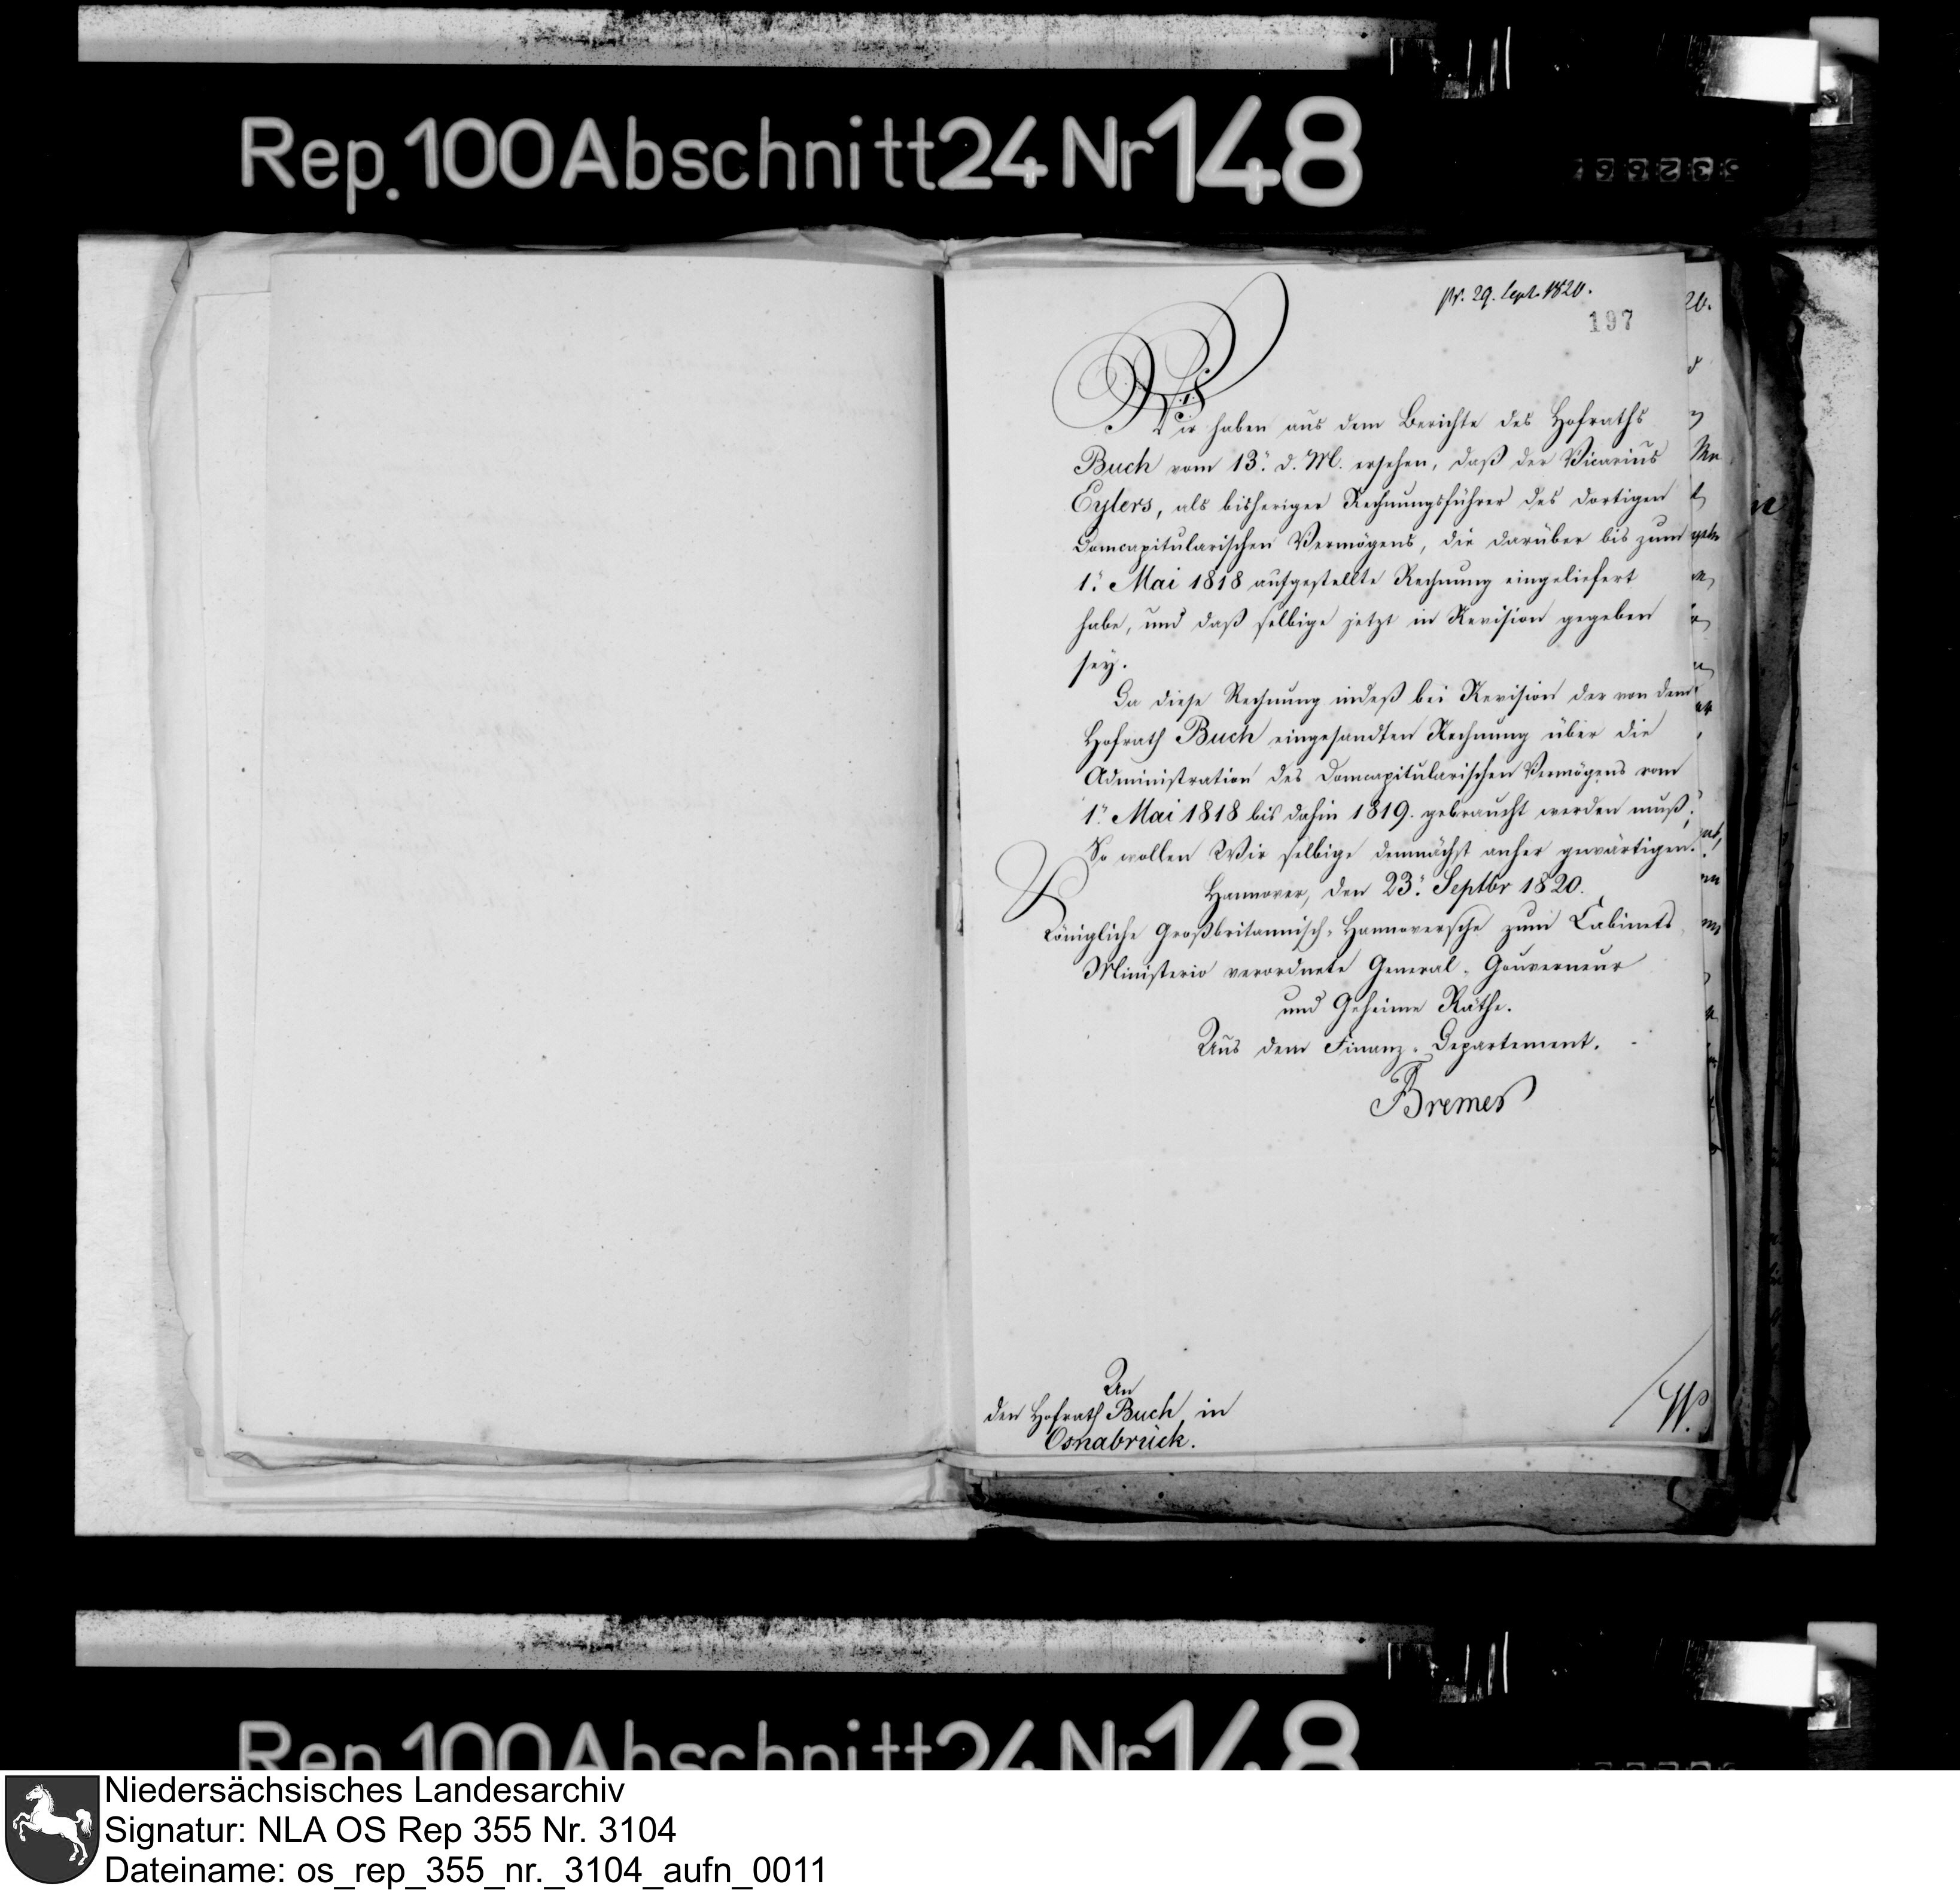 Rep. 100 Abschnitt 24 Nr 148
pr. 29. Sept. 1820.
197
Wir haben aus dem Berichte des Hofraths
Buch vom 13. d. M. ersehen, daß der Vicarius
Eylers, als bisheriger Rechnungsführer des dortigen
Domcapitularischen Vermögens, die darüber bis zum
1. Mai 1818 aufgestellte Rechnung eingeliefert
habe, und daß selbige jetzt in Revision gegeben
sey.
Da diese Rechnung indeß bei Revision der von dem
Hofrath Buch eingesandten Rechnung über die
Administration des Domcapitularischen Vermögens vom
1. Mai 1818 bis dahin 1819. gebraucht werden muß;
So wollen Wir selbige demnächst anher gewärtigen.
Hannover, den 23. Septbr 1820.
Königliche Großbritannisch-Hannoversche zum Cabinets
Ministerio verordnete General-Gouverneur
und Geheime Räthe.
Aus dem Finanz-Departement.
Bremer
An
den Hofrath Buch in
Osnabrück.
W.
Rep. 100 Abschnitt 24 Nr 148
Niedersächsisches Landesarchiv
Signatur: NLA OS Rep 355 Nr. 3104
Dateiname: os_rep_355_nr._3104_aufn_0011